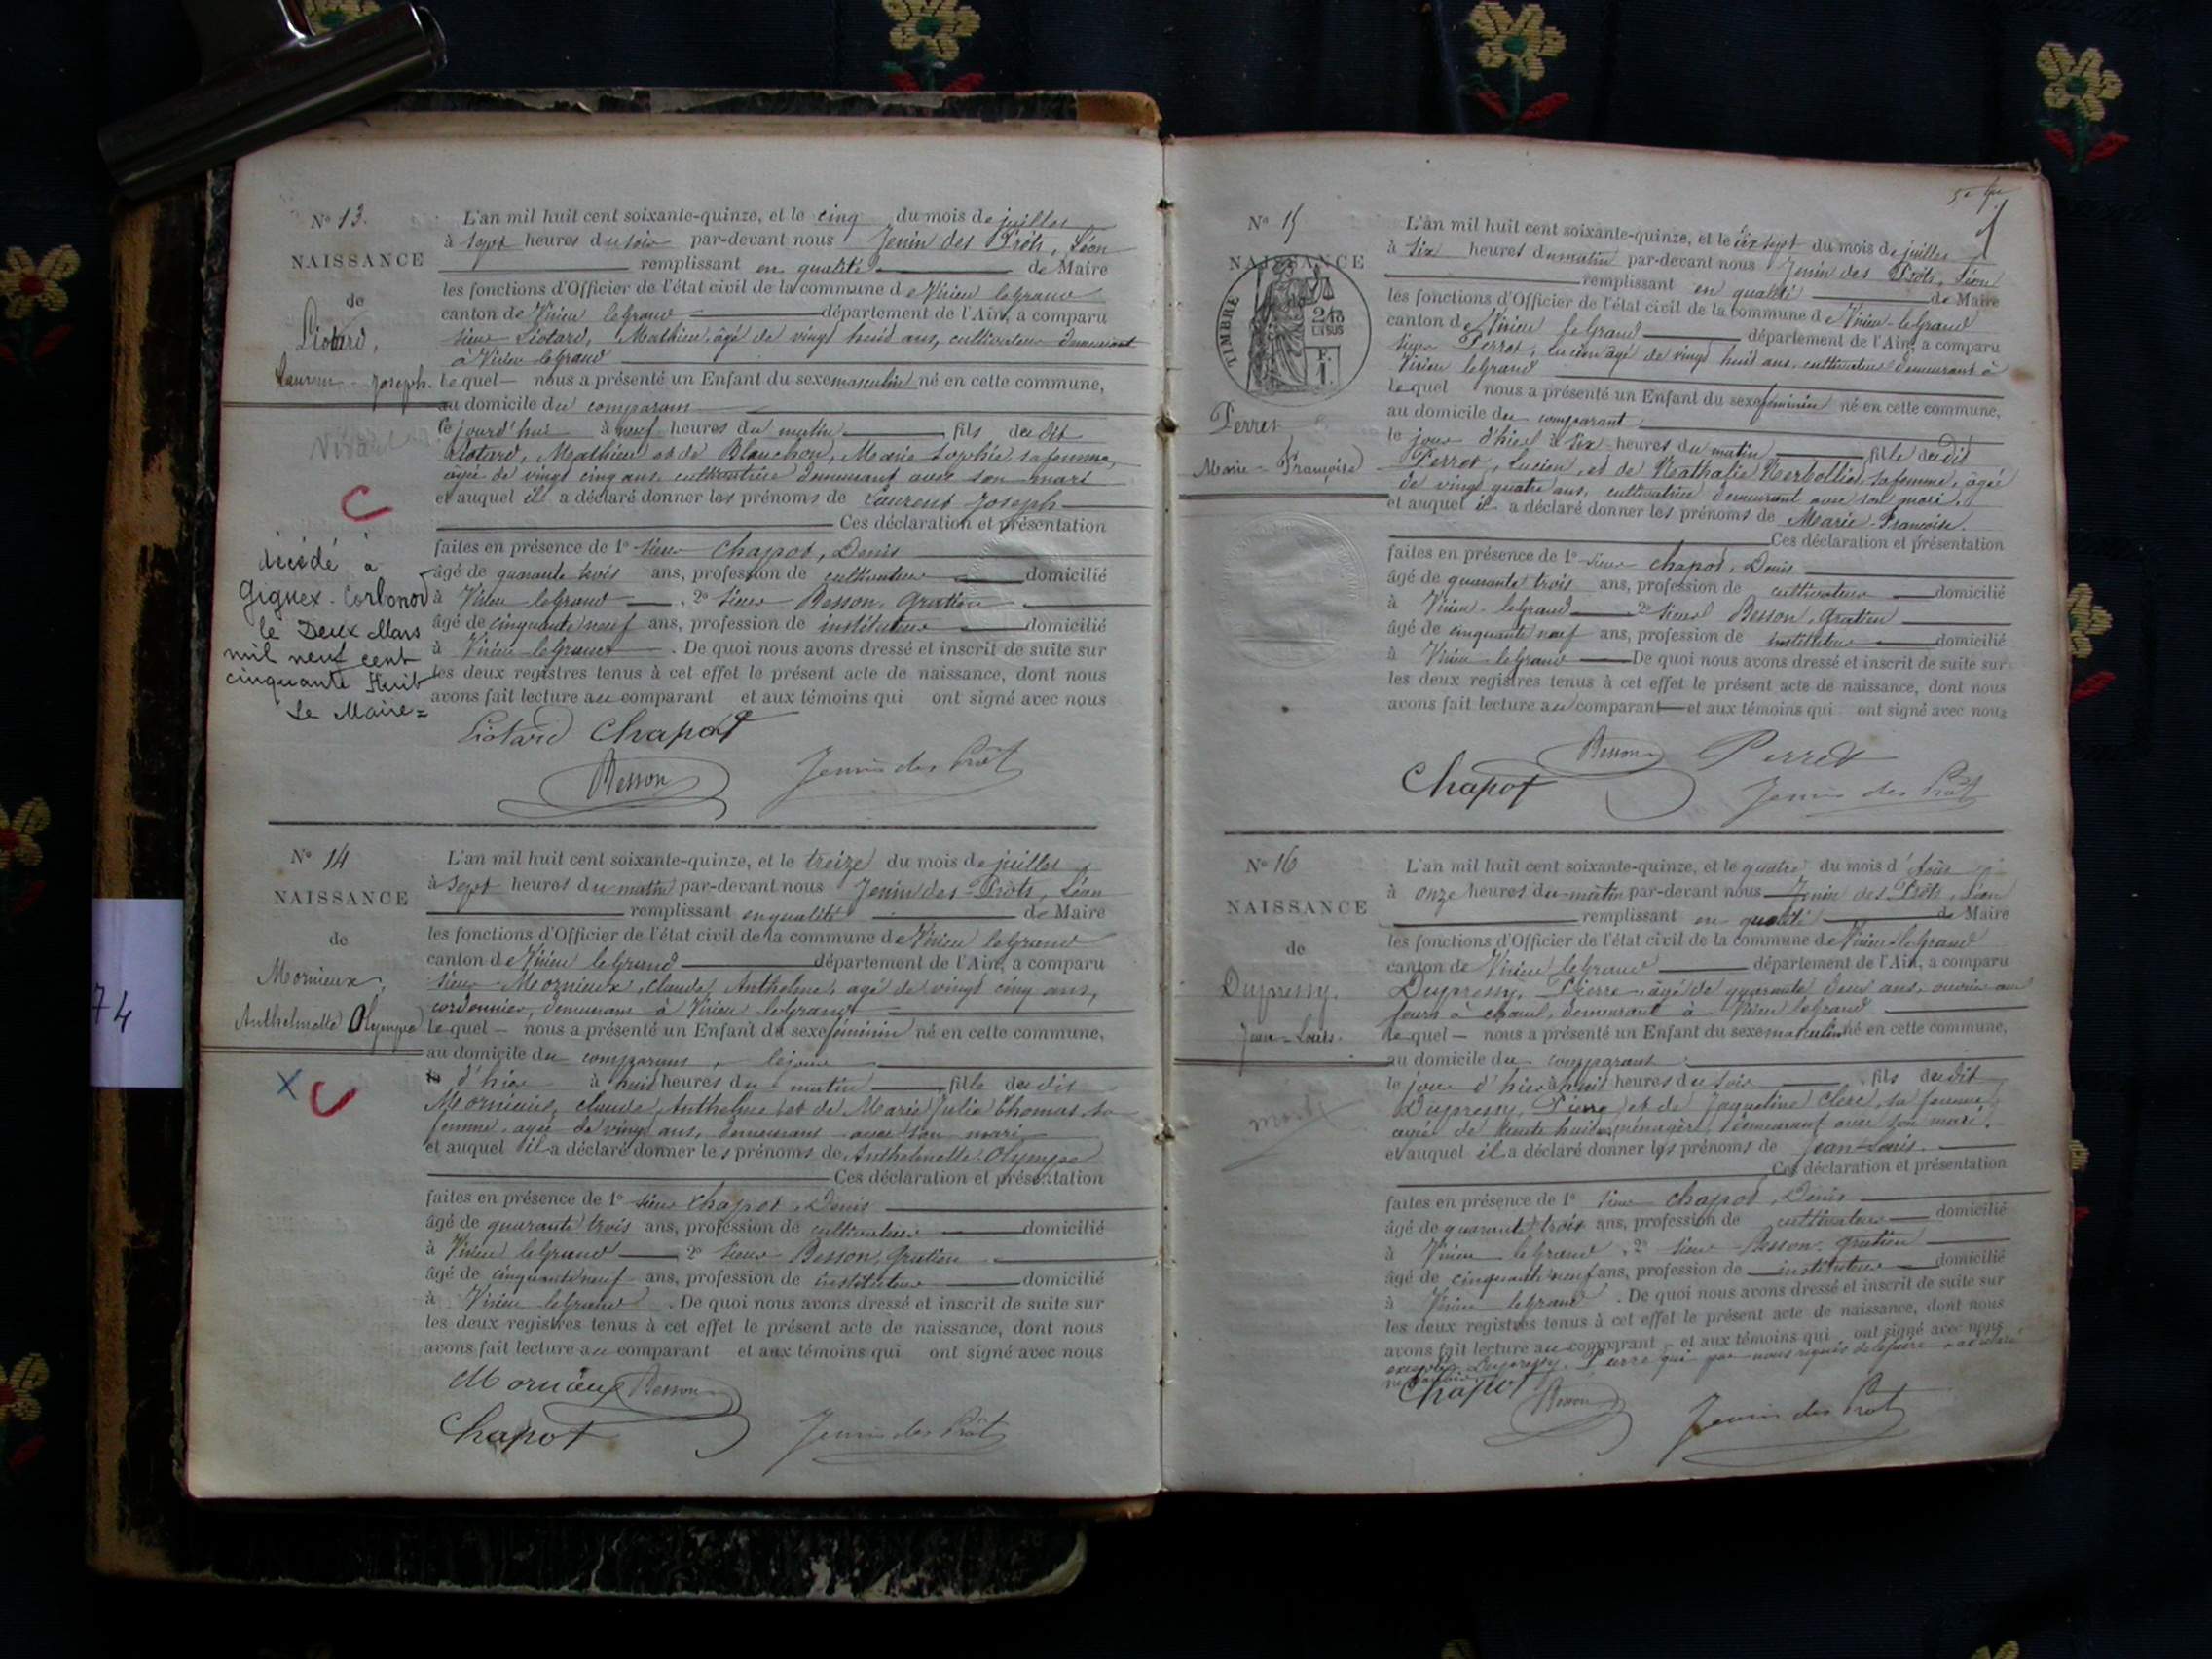 N° 13.
NAISSANCE
de
Liotard,
Laurent Joseph.
décédé à
Gignez-Corbonod
le Deux Mars
mil neuf cent
cinquante Huit
Le Maire=
L'an mil huit cent soixante-quinze, et le cinq du mois de juillet
à sept heures du soir par-devant nous Jenin des Prôts, Léon
remplissant en qualité de Maire
les fonctions d'Officier de l'état civil de la commune de Virieu leGrand
canton de Virieu leGrand département de l'Ain, a comparu
sieur Liotard, Mathieu, âgé de vingt huit ans, cultivateur demeurant
à Virieu leGrand
Lequel nous a présenté un Enfant du sexe masculin né en cette commune,
au domicile du comparant
ce jourd'hui à neuf heures du matin fils du dit
Liotard, Mathieu et de Blanchon, Marie Sophie, sa femme,
âgée de vingt cinq ans, cultivatrice demeurant avec son mari
et auquel il a déclaré donner les prénoms de Laurent Joseph
Ces déclaration et présentation
faites en présence de 1° sieur Chapot, Denis
âgé de quarante trois ans, profession de cultivateur domicilié
à Virieu leGrand, 2° sieur Besson, Gratien
âgé de cinquante neuf ans, profession de instituteur domicilié
à Virieu leGrand. De quoi nous avons dressé et inscrit de suite sur
les deux registres tenus à cet effet le présent acte de naissance, dont nous
avons fait lecture au comparant et aux témoins qui ont signé avec nous
Liotard Chapot
Besson Jenin des Prôts
N° 14
NAISSANCE
de
Mornieux,
Anthelmette Olympe
L'an mil huit cent soixante-quinze, et le treize du mois de juillet
à sept heures du matin par-devant nous Jenin des Prôts, Léon
remplissant en qualité de Maire
les fonctions d'Officier de l'état civil de la commune de Virieu leGrand
canton de Virieu leGrand département de l'Ain, a comparu
sieur Mornieux, Claude, Anthelme, agé de vingt cinq ans,
cordonnier, demeurant à Virieu leGrand
Lequel nous a présenté un Enfant du sexe féminin né en cette commune,
au domicile du comparant, le jour
d'hier à huit heures du matin fille du dit
Mornieux, Claude, Anthelme et de Marie Julie Thomas, sa
femme, agée de vingt ans, demeurant avec son mari
et auquel il a déclaré donner les prénoms de Anthelmette Olympe
Ces déclaration et présentation
faites en présence de 1° sieur Chapot, Denis
âgé de quarante trois ans, profession de cultivateur domicilié
à Virieu leGrand 2° sieur Besson, Gratien
âgé de cinquante neuf ans, profession de instituteur domicilié
à Virieu leGrand. De quoi nous avons dressé et inscrit de suite sur
les deux registres tenus à cet effet le présent acte de naissance, dont nous
avons fait lecture au comparant et aux témoins qui ont signé avec nous
Mornieux Besson
Chapot Jenin des Prôts
74
N° 15
NAISSANCE
TIMBRE
Perret
Marie-Françoise
L'an mil huit cent soixante-quinze, et le dix sept du mois de juillet
à six heures du matin par-devant nous Jenin des Prôts, Léon
remplissant en qualité de Maire
les fonctions d'Officier de l'état civil de la commune de Virieu-leGrand
canton de Virieu leGrand département de l'Ain, a comparu
sieur Perret, Lucien âgé de vingt huit ans, cultivateur demeurant à
Virieu leGrand
Lequel nous a présenté un Enfant du sexe féminin né en cette commune,
au domicile du comparant
le jour d'hier à six heures du matin fille du dit
Perret, Lucien, et de Nathalie Merbollier, sa femme, âgée
de vingt quatre ans, cultivatrice demeurant avec son mari.
et auquel il a déclaré donner les prénoms de Marie-Françoise.
Ces déclaration et présentation
faites en présence de 1° sieur Chapot, Denis
âgé de quarante trois ans, profession de cultivateur domicilié
à Virieu-leGrand 2° sieur Besson, Gratien
âgé de cinquante neuf ans, profession de instituteur domicilié
à Virieu-leGrand De quoi nous avons dressé et inscrit de suite sur
les deux registres tenus à cet effet le présent acte de naissance, dont nous
avons fait lecture au comparant et aux témoins qui ont signé avec nous
Besson Perret
Chapot Jenin des Prôts
N° 16
NAISSANCE
de
Dupressy,
Jean-Louis.
L'an mil huit cent soixante-quinze, et le quatre du mois d'Août
à onze heures du matin par-devant nous Jenin des Prôts, Léon
remplissant en qualité de Maire
les fonctions d'Officier de l'état civil de la commune de Virieu-leGrand
canton de Virieu leGrand département de l'Ain, a comparu
Dupressy, Pierre, âgé de quarante deux ans, ouvrier aux
fours à chaux, demeurant à Virieu leGrand
Lequel nous a présenté un Enfant du sexe masculin né en cette commune,
au domicile du comparant
le jour d'hier à huit heures du soir fils du dit
Dupressy, Pierre et de Jaqueline Clerc, sa femme,
agée de trente huit ans, ménagère, demeurant avec son mari.
et auquel il a déclaré donner les prénoms de Jean-Louis.
Ces déclaration et présentation
faites en présence de 1° sieur Chapot, Denis
âgé de quarante trois ans, profession de cultivateur domicilié
à Virieu leGrand, 2° sieur Besson, Gratien
âgé de cinquante neuf ans, profession de instituteur domicilié
à Virieu leGrand. De quoi nous avons dressé et inscrit de suite sur
les deux registres tenus à cet effet le présent acte de naissance, dont nous
avons fait lecture au comparant et aux témoins qui ont signé avec nous
excepté Dupressy, Pierre qui par nous requis de le faire a déclaré
Chapot
Besson Jenin des Prôts